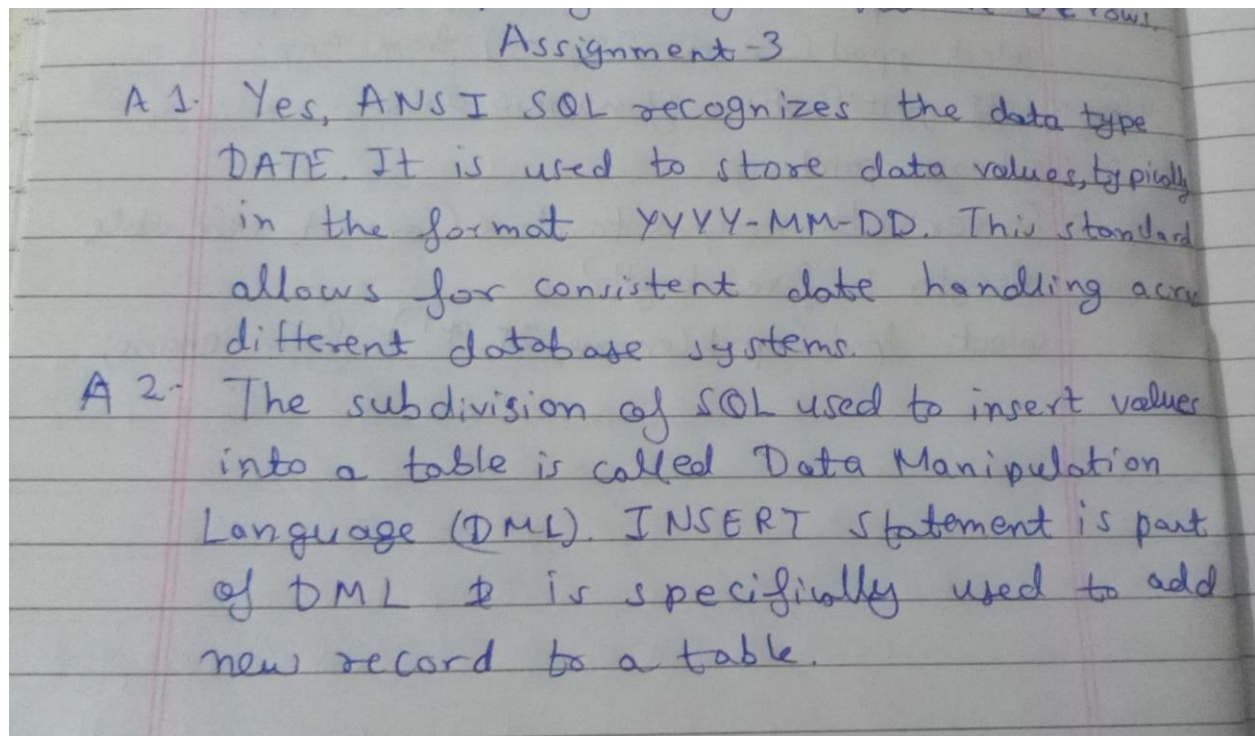 rows.
Assignment-3
A 1. Yes, ANSI SQL recognizes the data type
DATE. It is used to store data values, typically
in the format YYYY-MM-DD. This standard
allows for consistent date handling acro
different database systems.
A 2. The subdivision of SQL used to insert values
into a table is called Data Manipulation
Language (DML). INSERT statement is part
of DML & is specifically used to add
new record to a table.